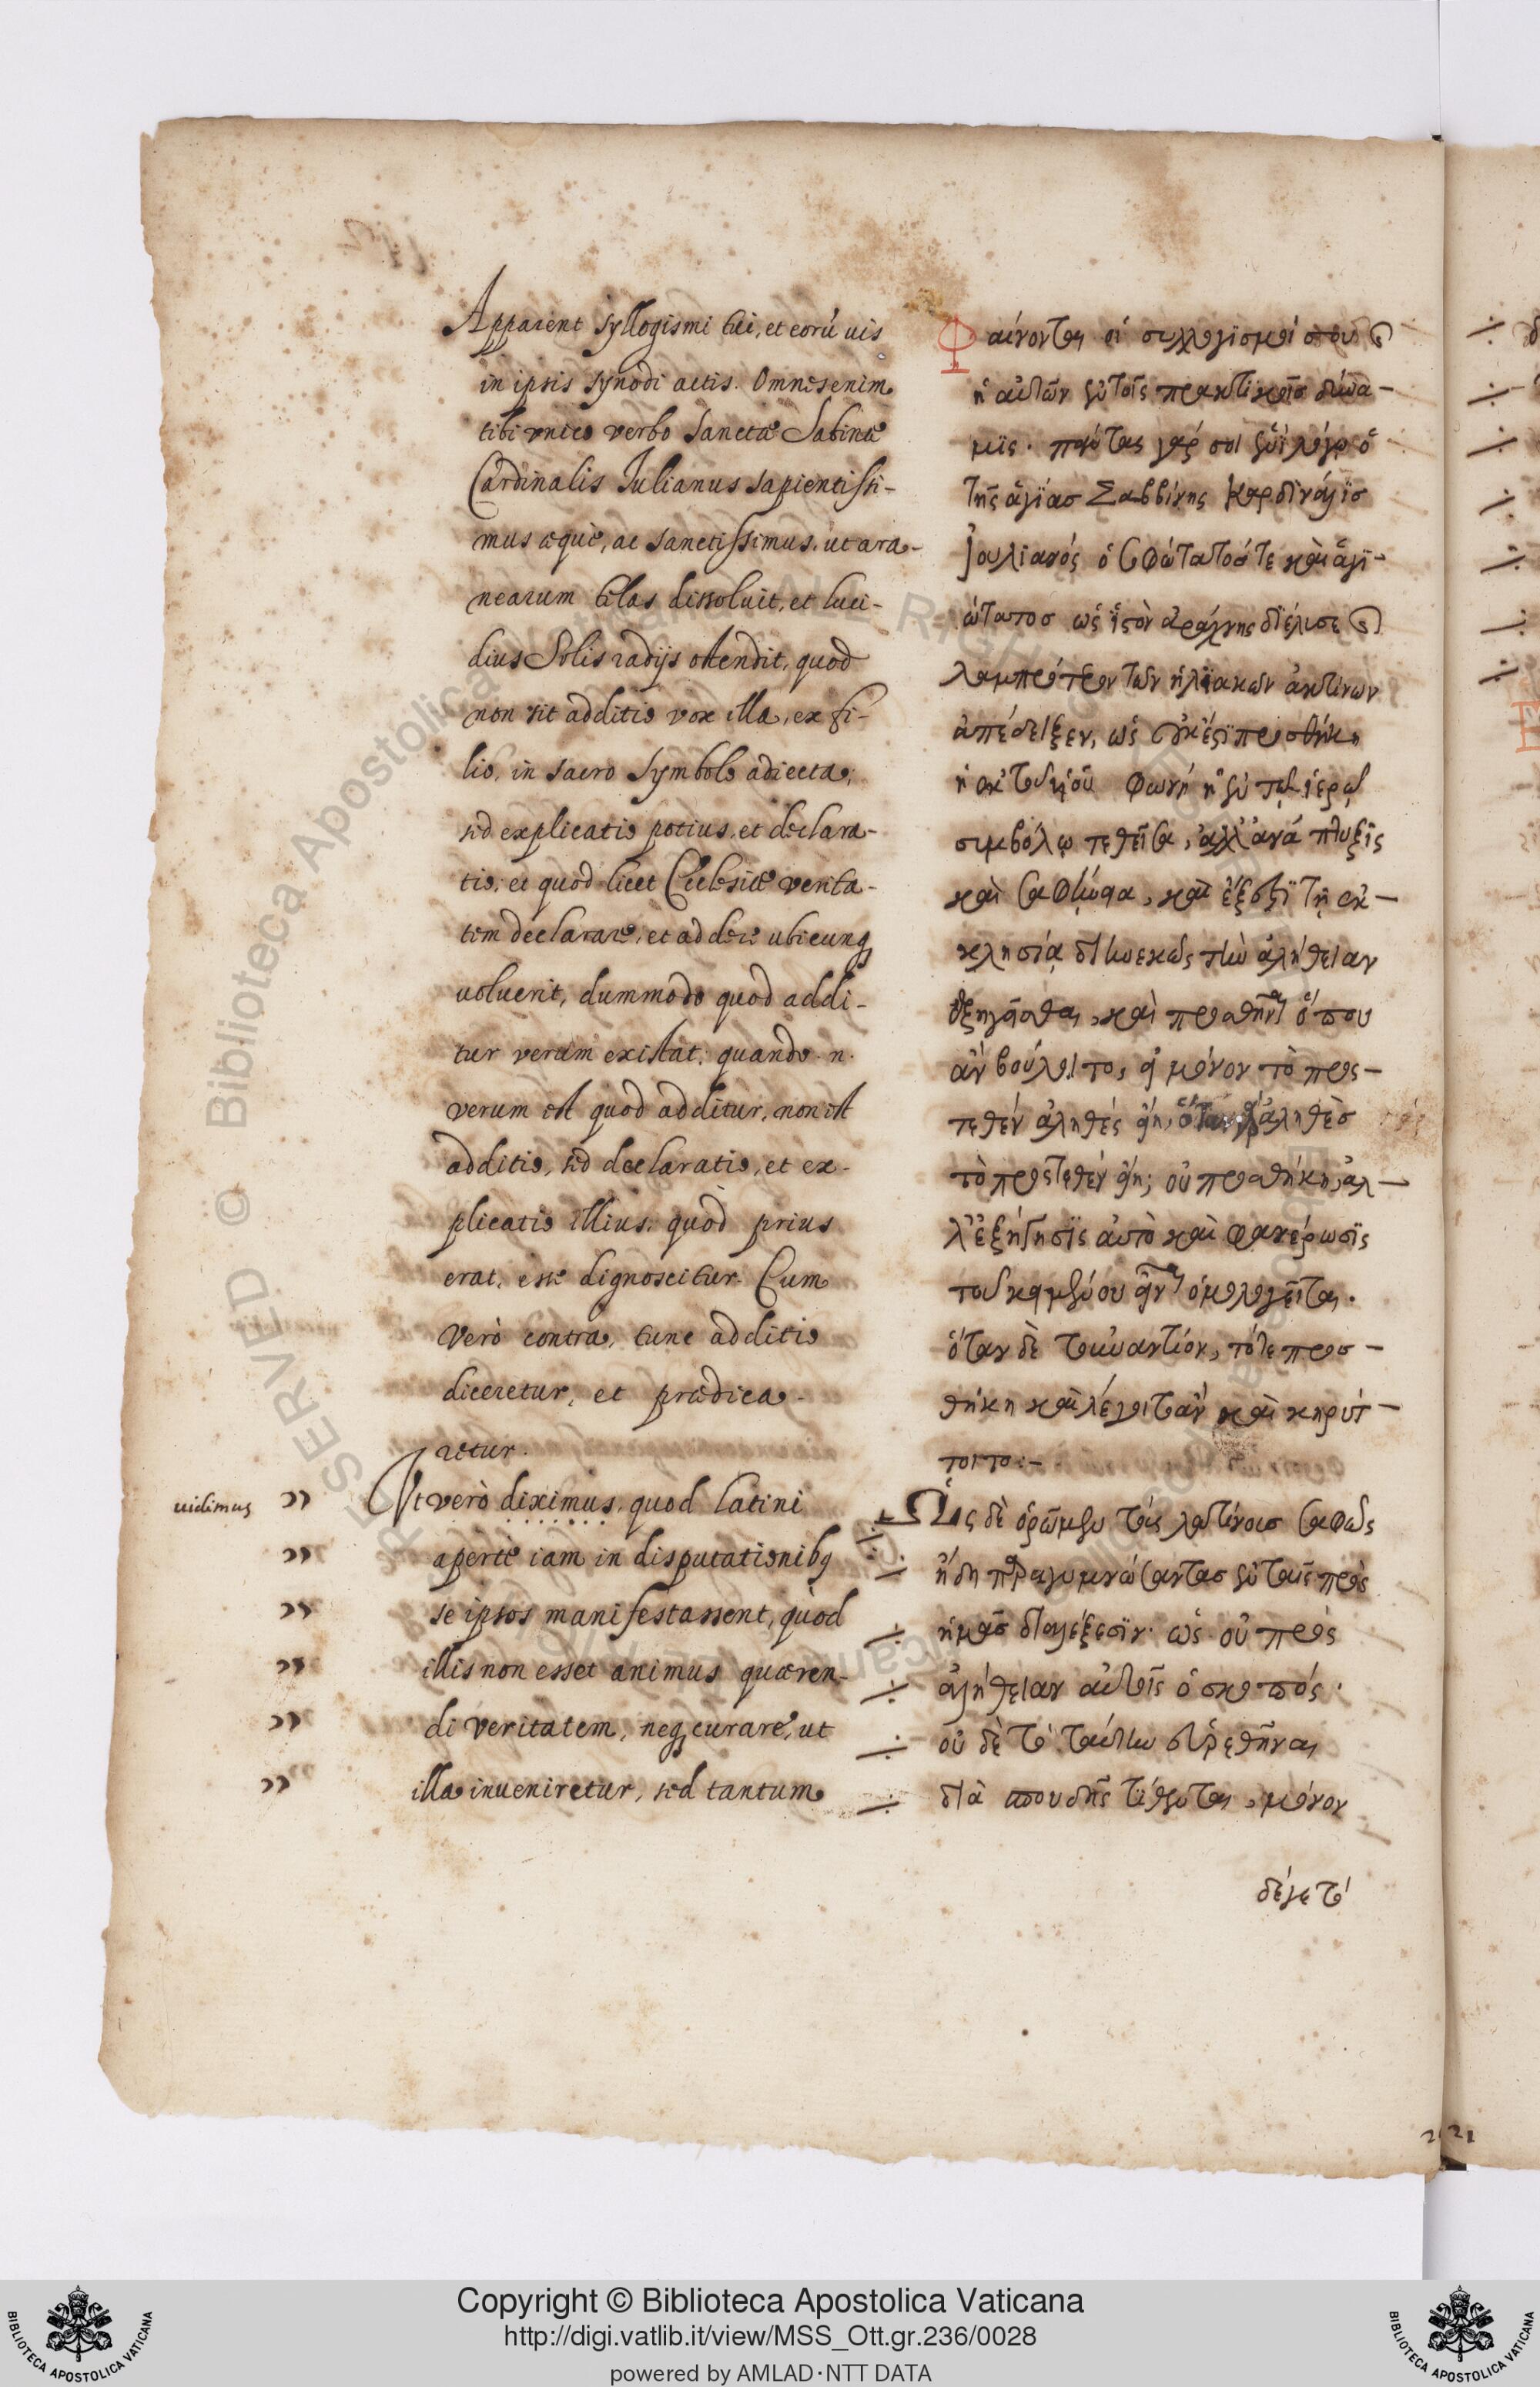 Apparent syllogismi tui, et eorū uis
in ipsis synodi actis. Omnes enim
tibi unico verbo Sanctæ Sabinæ
Cardinalis Iulianus sapientissi-
mus æquè, ac sanctissimus, ut ara-
nearum telas dissoluit, et luci-
dius Solis radijs ostendit, quod
non sit additio vox illa, ex fi-
lio, in sacro symbolo adiecta;
sed explicatio potius, et declara-
tio; et quod licet Ecclesiæ verita-
tem declarare, et addere ubicunq
uoluerit, dummodo quod addi-
tur verum existat; quando .n.
verum est quod additur, non est
additio, sed declaratio, et ex-
plicatio illius, quod prius
erat, esse dignoscitur. Cum
verò contra, tunc additio
diceretur, et prædica-
retur.
uidimus " Ut verò diximus, quod Latini
" apertè iam in disputationibq
" se ipsos manifestassent, quòd
" illis non esset animus quæren-
" di veritatem, neq curare, ut
" illa inueniretur, sed tantum
Φαίνονται οἱ συλλογισμοί σου καὶ
ἡ αὐτῶν ἐν τοῖς πρακτικοῖς δύνα-
μις. πάντας γάρ σοι ἑνὶ λόγῳ ὁ
τῆς ἁγίας Σαββίνης Καρδινάλις
Ἰουλιανός ὁ σοφώτατος τε καὶ ἁγι-
ώτατος ὡς ἱστὸν ἀράχνης διέλυσε καὶ
λαμπρότερον τῶν ἡλιακῶν ἀκτίνων
ἀπέδειξεν, ὡς οὐκ ἔστι προσθήκη
ἡ ἐκ τοῦ υἱοῦ φωνή ἡ ἐν τῷ ἱερῷ
συμβόλῳ τεθεῖσα, ἀλλ' ἀνάπτυξις
καὶ σαφήνεια, καὶ ἔξεστι τῇ ἐκ-
κλησίᾳ διηνεκῶς τὴν ἀλήθειαν
ἐξηγεῖσθαι, καὶ προσθεῖναι ὅπου
ἂν βούλοιτο, εἰ μόνον τὸ προσ-
τεθέν ἀληθές εἴη, ὅταν γὰρ ἀληθὲς
τὸ προστεθέν εἴη; οὐ προσθήκη, ἀλ-
λ' ἐξήγησις αὐτὸ καὶ φανέρωσις
τοῦ κειμένου εἶναι ὁμολογεῖται.
ὅταν δὲ τοὐναντίον, τότε προσ-
θήκη καὶ λέγοιτ' ἂν καὶ κηρύτ-
τοιτο:-
Ὡς δὲ ὁρῶμεν τοὺς λατίνους σαφῶς
ἤδη παραγυμνώσαντας ἐν ταῖς πρὸς
ἡμᾶς διαλέξεσιν. ὡς οὐ πρὸς
ἀλήθειαν αὐτοῖς ὁ σκοπός.
οὐ δὲ τὸ ταύτην εὑρεθῆναι
διὰ σπουδῆς τίθενται, μόνον
δέγε τὸ
Copyright © Biblioteca Apostolica Vaticana
http://digi.vatlib.it/view/MSS_Ott.gr.236/0028
powered by AMLAD·NTT DATA
BIBLIOTECA APOSTOLICA VATICANA
BIBLIOTECA APOSTOLICA VATICANA